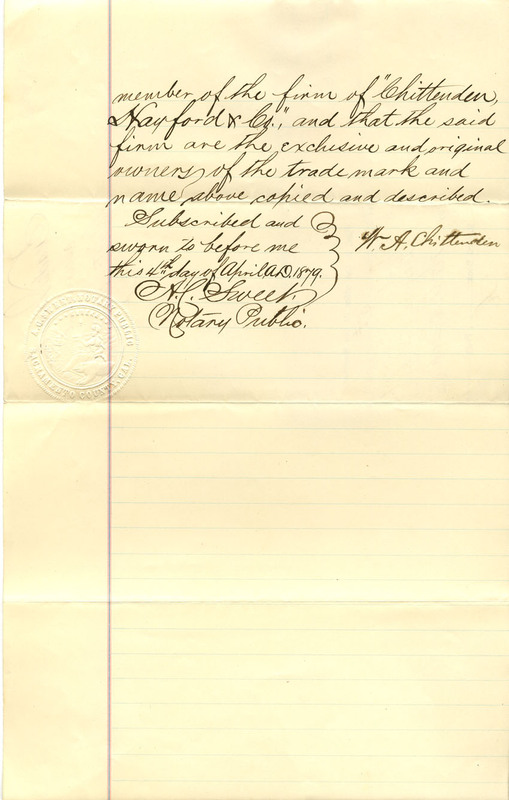 member of the firm of "Chittenden,
Hayford & Co.", and that the said
firm are the exclusive and original
owners of the trade mark and
name above copied and described.
Subscribed and
sworn to before me
this 4th day of April A.D. 1879.
W. A. Chittenden
A. C. Sweet,
Notary Public.
NOTARY PUBLIC
COUNTY, CAL.